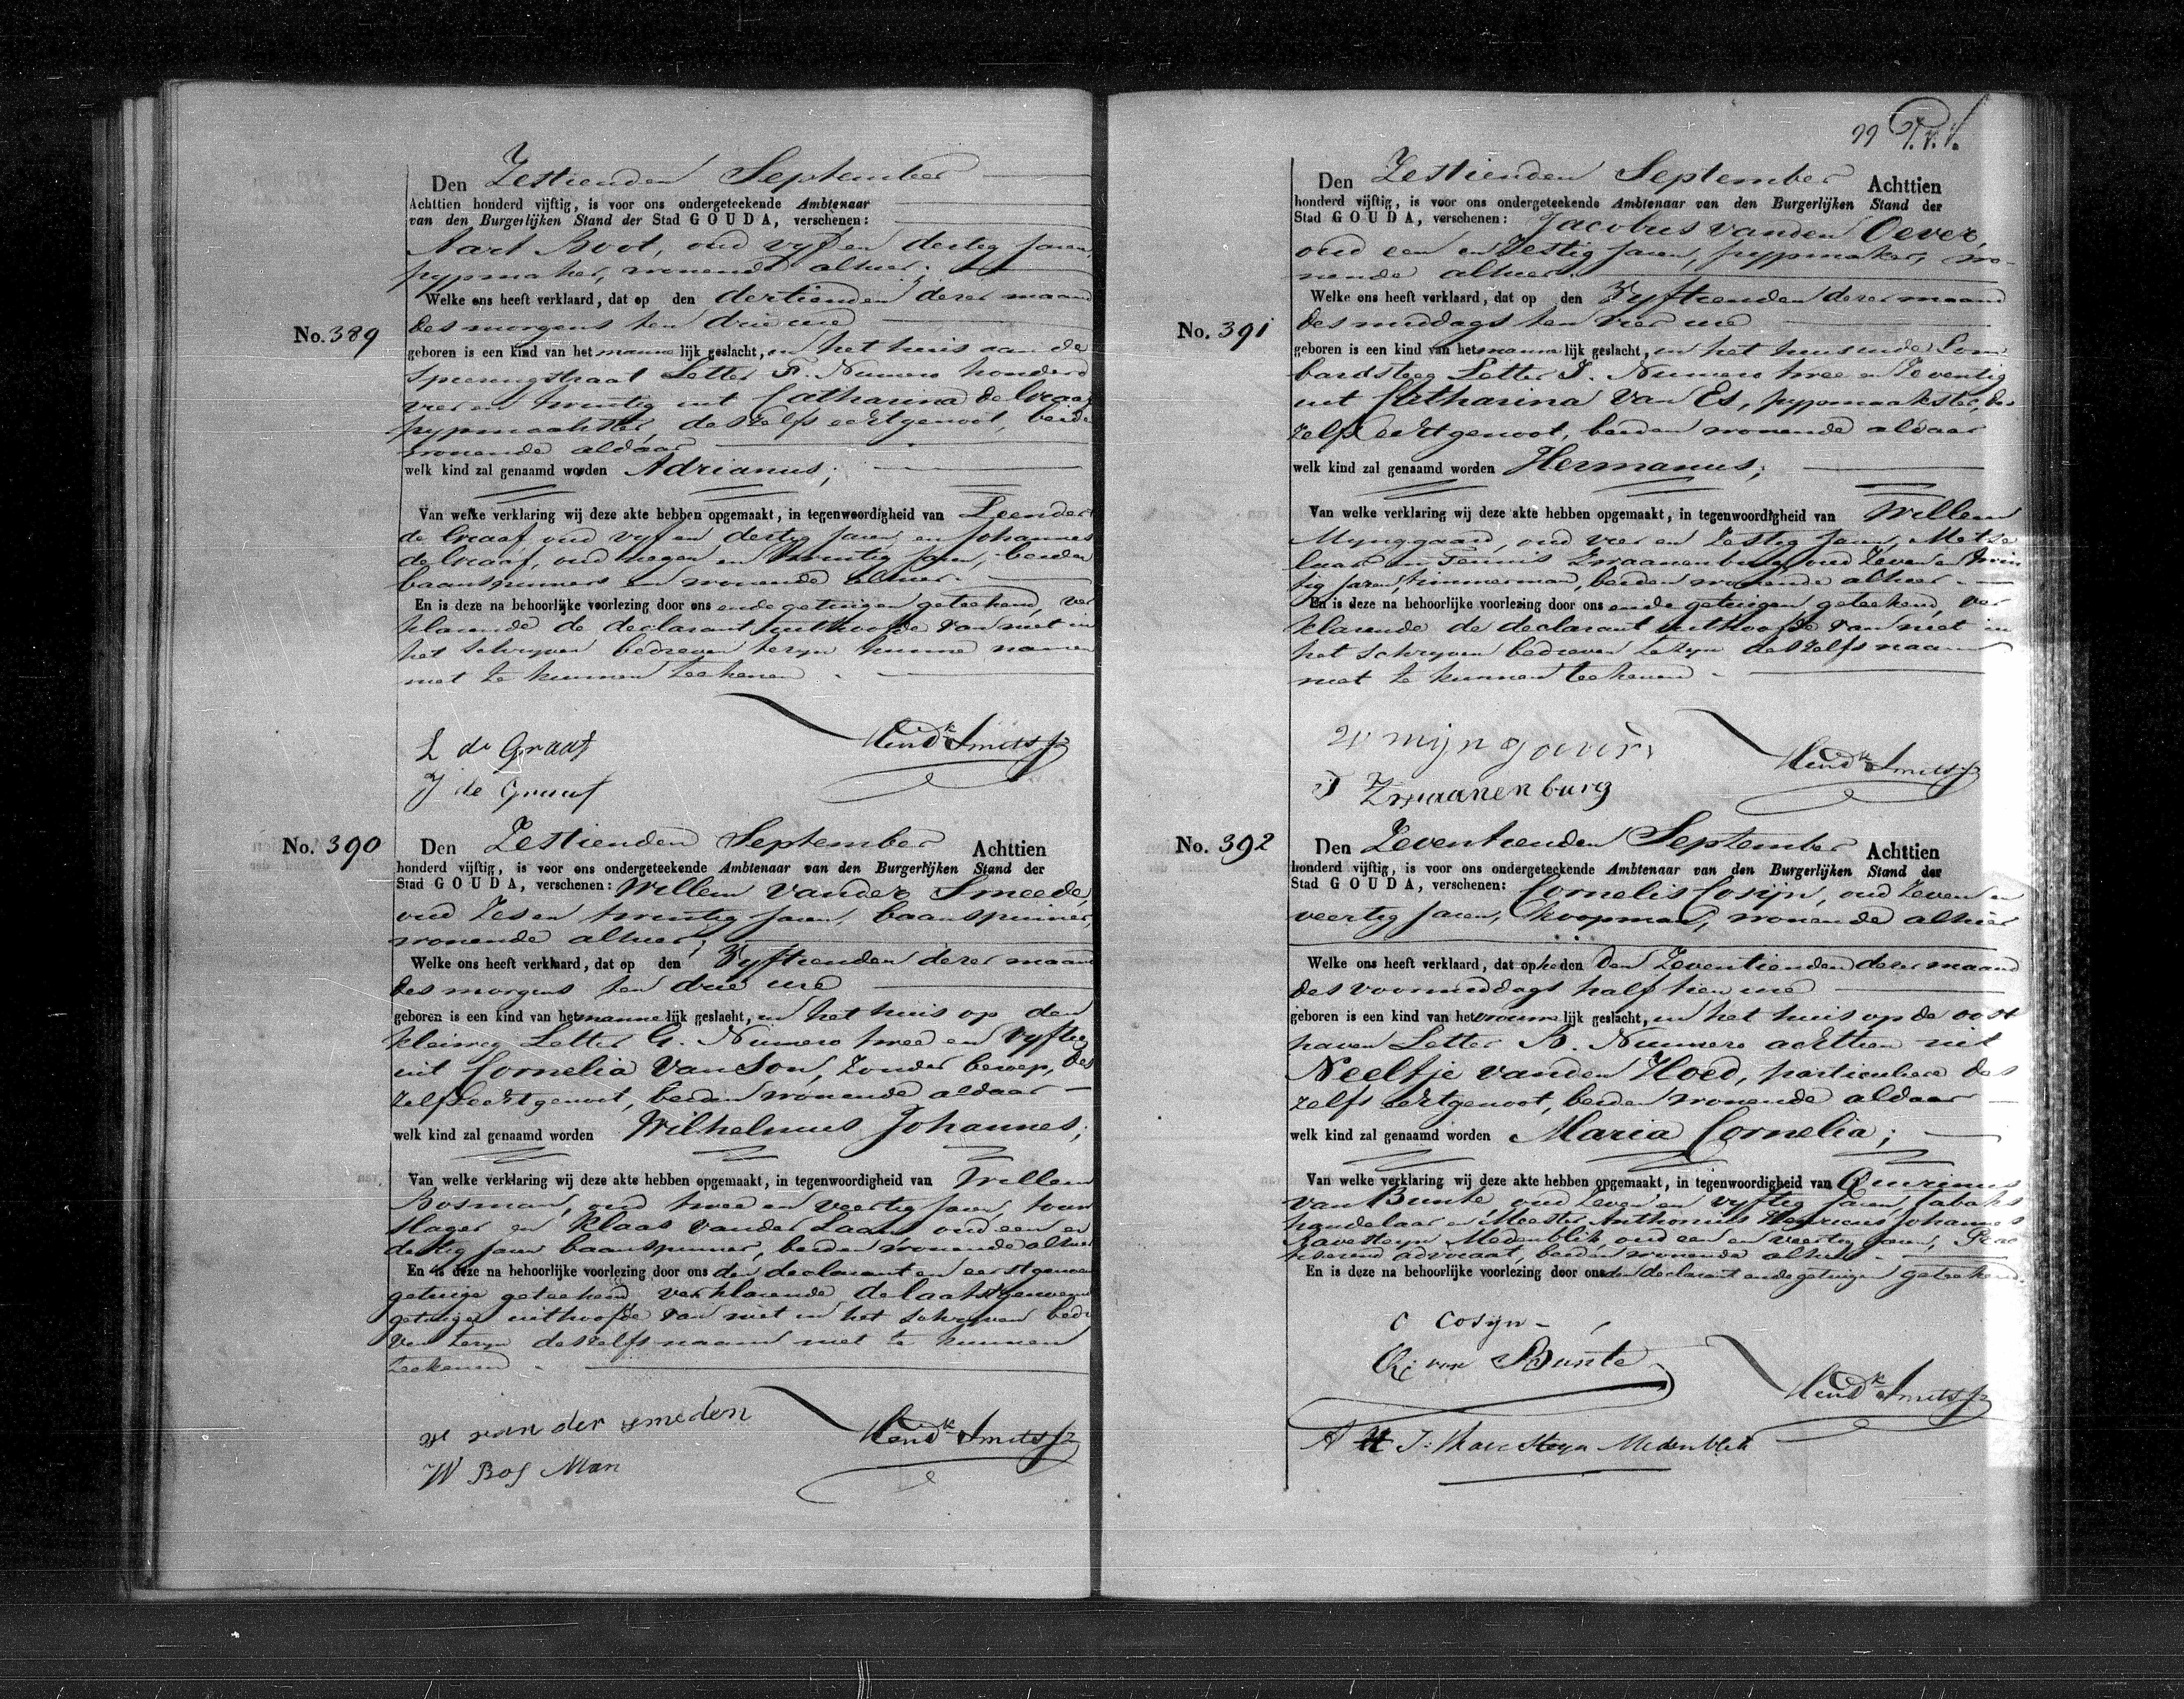 Den Zestienden September
Achttien honderd vijftig, is voor ons ondergeteekende Ambtenaar
van den Burgerlijken Stand der Stad GOUDA, verschenen:
Aart Boot, oud vyf en dertig Jaren,
pypmaker, wonende alhier;
Welke ons heeft verklaard, dat op den dertienden dezer maand
No. 389
des morgens ten drie ure
geboren is een kind van het mannelijk geslacht, in het huis aan de
Spieringstraat Letter Numero honderd
vier en twintig uit Catharina de Graaf
pypmaakster, deszelfs echtgenoot, beide
wonende aldaar
welk kind zal genaamd worden Adrianus;
Van welke verklaring wij deze akte hebben opgemaakt, in tegenwoordigheid van Leendert
de Graaf, oud vyf en dertig Jaren, en Johannes
de Graaf, oud negen en twintig Jaren, beiden
baanspinners en wonende alhier.
En is deze na behoorlijke voorlezing door ons en de getuigen geteekend, ver
klarende de declarant uithoofde van niet in
het schryven bedreven tezyn hunne namen
niet te kunnen teekenen
Hendk Smits Jz
L de Graaf
J de Graaf
No. 390
Den Zestienden September Achttien
honderd vijftig, is voor ons ondergeteekende Ambtenaar van den Burgerlijken Stand der
Stad GOUDA, verschenen: Willem vander Smeede,
oud Zes en twintig Jaren, baanspinner,
wonende alhier;
Welke ons heeft verklaard, dat op den Vyftienden dezer maand
des morgens ten drie ure
geboren is een kind van het mannelijk geslacht, in het huis op den
kleiweg Letter G. Numero twee en vyftig
uit Cornelia van Son, Zonder beroep, des
zelfs echtgenoot, beiden wonende aldaar
welk kind zal genaamd worden Wilhelmus Johannes;
Van welke verklaring wij deze akte hebben opgemaakt, in tegenwoordigheid van Willem
Bosman, oud twee en veertig Jaren, touw
slager en Klaas vander Laan oud een en
dertig Jaren baanspinner, beiden wonende alhier
En is deze na behoorlijke voorlezing door ons den declarant en eerstgenoem
getuige geteekend verklarende de laatstgenoemd
getuige uithoofde van niet in het schryven bedre
ven tezyn deszelfs naam niet te kunnen
teekenen
Hendk Smits Jz
W van der smeden
W Bos Man
99
Den Zestienden September Achttien
honderd vijftig, is voor ons ondergeteekende Ambtenaar van den Burgerlijken Stand der
Stad GOUDA, verschenen: Jacobus vanden Oever,
oud een en Zestig Jaren, pypmaker, wo-
nende alhier.
Welke ons heeft verklaard, dat op den Vyftienden dezer maand
No. 391
des middags ten vier ure
geboren is een kind van het mannelijk geslacht, in het huis in de Lom
bardsteeg Letter I. Numero twee en Zeventig
uit Catharina van Es, pypmaakster, des
zelfs echtgenoot, beiden wonende aldaar
welk kind zal genaamd worden Hermanus;
Van welke verklaring wij deze akte hebben opgemaakt, in tegenwoordigheid van Willem
Mynggaard, oud vier en Zestig Jaren, Metse
laar en Teunis Zwaanenburg oud Zeven en twin
tig Jaren, timmerman, beiden wonende alhier.
En is deze na behoorlijke voorlezing door ons en de getuigen geteekend, ver
klarende de declarant uithoofde van niet in
het schryven bedreven te zyn deszelfs naam
niet te kunnen teekenen
Hendk Smits Jz
T Zwaanenburg
No. 392
Den Zeventienden September Achttien
honderd vijftig, is voor ons ondergeteekende Ambtenaar van den Burgerlijken Stand der
Stad GOUDA, verschenen: Cornelis Cosijn, oud Zeven en
veertig Jaren, koopman, wonende alhier
Welke ons heeft verklaard, dat op heden den Zeventienden dezer maand
des voormiddags half tien ure
geboren is een kind van het vrouwelijk geslacht, in het huis op de oost
haven Letter B. Numero achttien uit
Neeltje vanden Hoed, particuliere des
zelfs echtgenoot, beiden wonende aldaar
welk kind zal genaamd worden Maria Cornelia;
Van welke verklaring wij deze akte hebben opgemaakt, in tegenwoordigheid van Quirinus
van Bunte, oud Zeven en vyftig Jaren, tabaks
handelaar en Meester Anthonius Henricus Johannes
Ravesteyn Medenblik oud een en veertig Jaren, Prac
tiserend advocaat, beiden wonende alhier.
En is deze na behoorlijke voorlezing door ons den declarant en de getuigen geteekend.
C Cosyn
Q: van Bunte
Hendk Smits Jz
A H J: Ravesteyn Medenblik